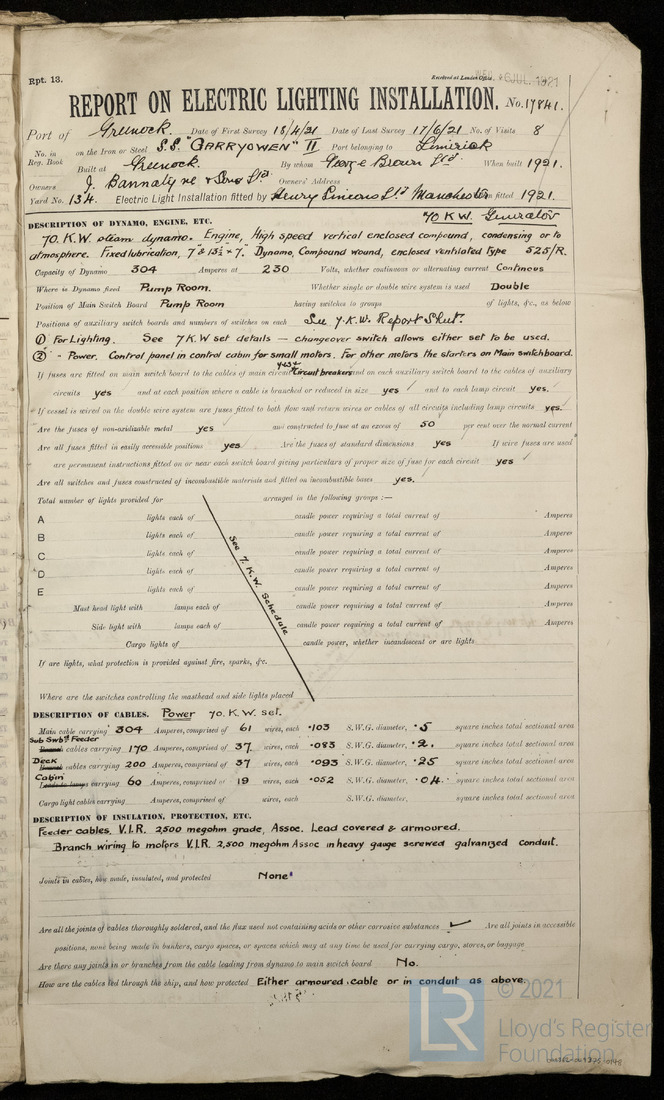 Rpt. 13. Received at London Office JUL. 1921
REPORT ON ELECTRIC LIGHTING INSTALLATION. No. 17841.
Port of Greenock. Date of First Survey 18/4/21 Date of Last Survey 17/6/21 No. of Visits 8
No. in Reg. Book on the Iron or Steel S.S. "GARRYOWEN" II Port belonging to Limerick
Built at Greenock. By whom George Brown Ltd When built 1921.
Owners J. Bannatyne & Sons Ltd. Owners' Address
Yard No. 134. Electric Light Installation fitted by Henry Simons Ltd Manchester When fitted 1921.
DESCRIPTION OF DYNAMO, ENGINE, ETC. 70 K.W. Generator
70. K.W. steam dynamo. Engine, High speed vertical enclosed compound, condensing or to
atmosphere. Fixed lubrication, 7" & 13½" × 7". Dynamo, Compound wound, enclosed ventilated type 525/R.
Capacity of Dynamo 304 Amperes at 230 Volts, whether continuous or alternating current Continous
Where is Dynamo fixed Pump Room. Whether single or double wire system is used Double
Position of Main Switch Board Pump Room having switches to groups of lights, &c., as below
Positions of auxiliary switch boards and numbers of switches on each See 7.K.W. Report Sheet.
① For Lighting. See 7 K.W set details — changeover switch allows either set to be used.
② - Power. Control panel in control cabin for small motors. For other motors the starters on Main switchboard.
If fuses are fitted on main switch board to the cables of main circuit yes & Circuit breakers and on each auxiliary switch board to the cables of auxiliary
circuits yes ✓ and at each position where a cable is branched or reduced in size yes ✓ and to each lamp circuit yes. ✓
If vessel is wired on the double wire system are fuses fitted to both flow and return wires or cables of all circuits including lamp circuits yes.
Are the fuses of non-oxidizable metal yes and constructed to fuse at an excess of 50 per cent over the normal current
Are all fuses fitted in easily accessible positions yes Are the fuses of standard dimensions yes If wire fuses are used
are permanent instructions fitted on or near each switch board giving particulars of proper size of fuse for each circuit yes ✓
Are all switches and fuses constructed of incombustible materials and fitted on incombustible bases yes.
Total number of lights provided for arranged in the following groups :—
A lights each of candle power requiring a total current of Amperes
B lights each of candle power requiring a total current of Amperes
C lights each of candle power requiring a total current of Amperes
D lights each of candle power requiring a total current of Amperes
E lights each of candle power requiring a total current of Amperes
See 7. K.W. Schedule
Mast head light with lamps each of candle power requiring a total current of Amperes
Side light with lamps each of candle power requiring a total current of Amperes
Cargo lights of candle power, whether incandescent or arc lights
If arc lights, what protection is provided against fire, sparks, &c.
Where are the switches controlling the masthead and side lights placed
DESCRIPTION OF CABLES. Power 70. K.W. set.
Main cable carrying 304 Amperes, comprised of 61 wires, each ·103 S.W.G. diameter, ·5 square inches total sectional area
Sub Swbd Feeder
Branch cables carrying 170 Amperes, comprised of 37 wires, each ·083 S.W.G. diameter, ·2. square inches total sectional area
Deck
Branch cables carrying 200 Amperes, comprised of 37 wires, each ·093 S.W.G. diameter, ·25 square inches total sectional area
Cabin
Leads to lamps carrying 60 Amperes, comprised of 19 wires, each ·052 S.W.G. diameter, ·04. square inches total sectional area
Cargo light cables carrying Amperes, comprised of wires, each S.W.G. diameter, square inches total sectional area
DESCRIPTION OF INSULATION, PROTECTION, ETC.
Feeder cables. V.I.R. 2,500 megohm grade, Assoc. Lead covered & armoured.
Branch wiring to motors V.I.R. 2,500 megohm Assoc in heavy gauge screwed galvanized conduit.
Joints in cables, how made, insulated, and protected None
Are all the joints of cables thoroughly soldered, and the flux used not containing acids or other corrosive substances ✓ Are all joints in accessible
positions, none being made in bunkers, cargo spaces, or spaces which may at any time be used for carrying cargo, stores, or baggage
Are there any joints in or branches from the cable leading from dynamo to main switch board No.
How are the cables led through the ship, and how protected Either armoured cable or in conduit as above.
LR © 2021
Lloyd's Register
Foundation